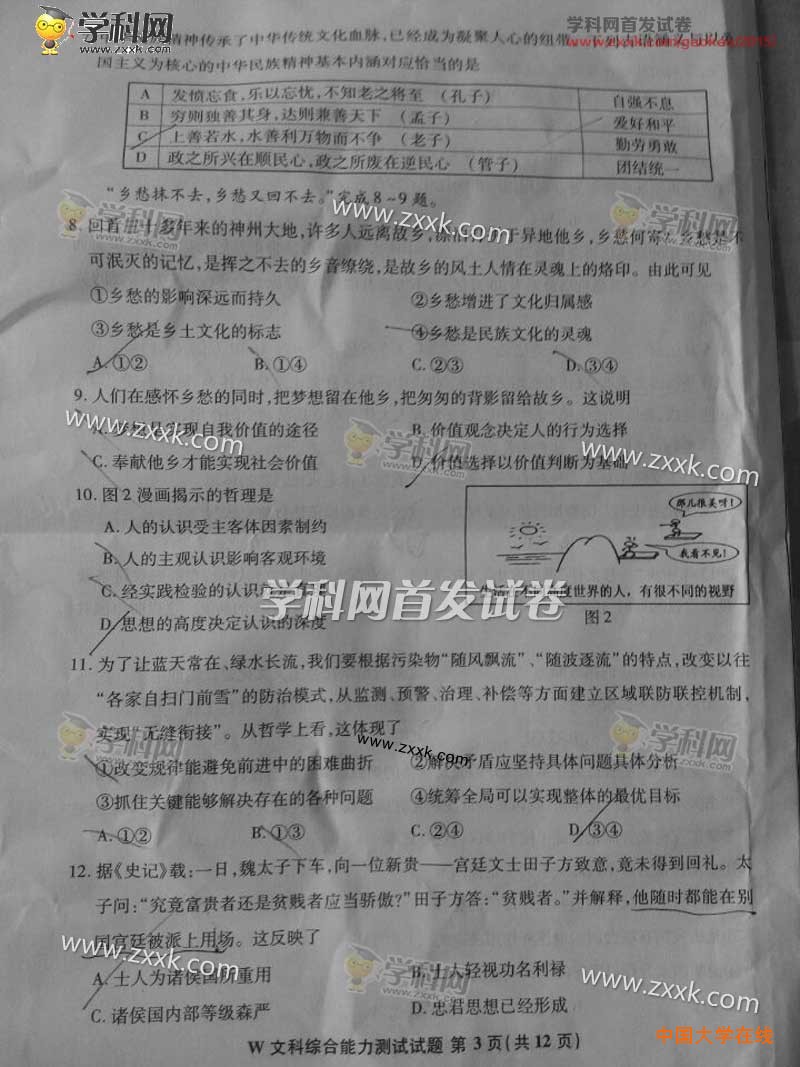 学科网 WWW.ZXXK.COM
学科网首发试卷
精神传承了中华传统文化血脉,已经成为凝聚人心的纽带。
国主义为核心的中华民族精神基本内涵对应恰当的是
A 发愤忘食,乐以忘忧,不知老之将至 (孔子) 自强不息
B 穷则独善其身,达则兼善天下 (孟子) 爱好和平
C 上善若水,水善利万物而不争 (老子) 勤劳勇敢
D 政之所兴在顺民心,政之所废在逆民心 (管子) 团结统一
“乡愁抹不去,乡愁又回不去。”完成8~9题。
8. 回首 十多年来的神州大地,许多人远离故乡, 于异地他乡,乡愁何寄?乡愁是不
可泯灭的记忆,是挥之不去的乡音缭绕,是故乡的风土人情在灵魂上的烙印。由此可见
①乡愁的影响深远而持久 ②乡愁增进了文化归属感
③乡愁是乡土文化的标志 ④乡愁是民族文化的灵魂
A.①② B.①④ C.②③ D.③④
9. 人们在感怀乡愁的同时,把梦想留在他乡,把匆匆的背影留给故乡。这说明
A. 乡愁是实现自我价值的途径 B. 价值观念决定人的行为选择
C. 奉献他乡才能实现社会价值 D. 价值选择以价值判断为基础
10. 图2漫画揭示的哲理是
A. 人的认识受主客体因素制约
B. 人的主观认识影响客观环境
C. 经实践检验的认识
D. 思想的高度决定认识的深度
那儿很美呀!
我看不见!
生活在不同高度世界的人,有很不同的视野
图2
学科网首发试卷
11. 为了让蓝天常在、绿水长流,我们要根据污染物“随风飘流”、“随波逐流”的特点,改变以往
“各家自扫门前雪”的防治模式,从监测、预警、治理、补偿等方面建立区域联防联控机制,
实现“无缝衔接”。从哲学上看,这体现了
①改变规律能避免前进中的困难曲折 ②解决矛盾应坚持具体问题具体分析
③抓住关键能够解决存在的各种问题 ④统筹全局可以实现整体的最优目标
A.①② B.①③ C.②④ D.③④
12. 据《史记》载:一日,魏太子下车,向一位新贵——宫廷文士田子方致意,竟未得到回礼。太
子问:“究竟富贵者还是贫贱者应当骄傲?”田子方答:“贫贱者。”并解释,他随时都能在别
国宫廷被派上用场。这反映了
A. 士人为诸侯国所重用 B. 士人轻视功名利禄
C. 诸侯国内部等级森严 D. 忠君思想已经形成
W 文科综合能力测试试题 第3页(共12页)
中国大学在线
www.zxxk.com